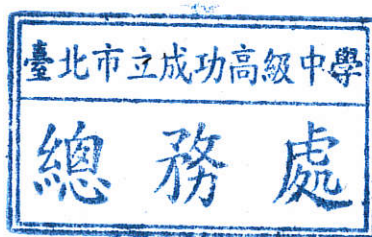 臺北市立成功高級中學
總務處